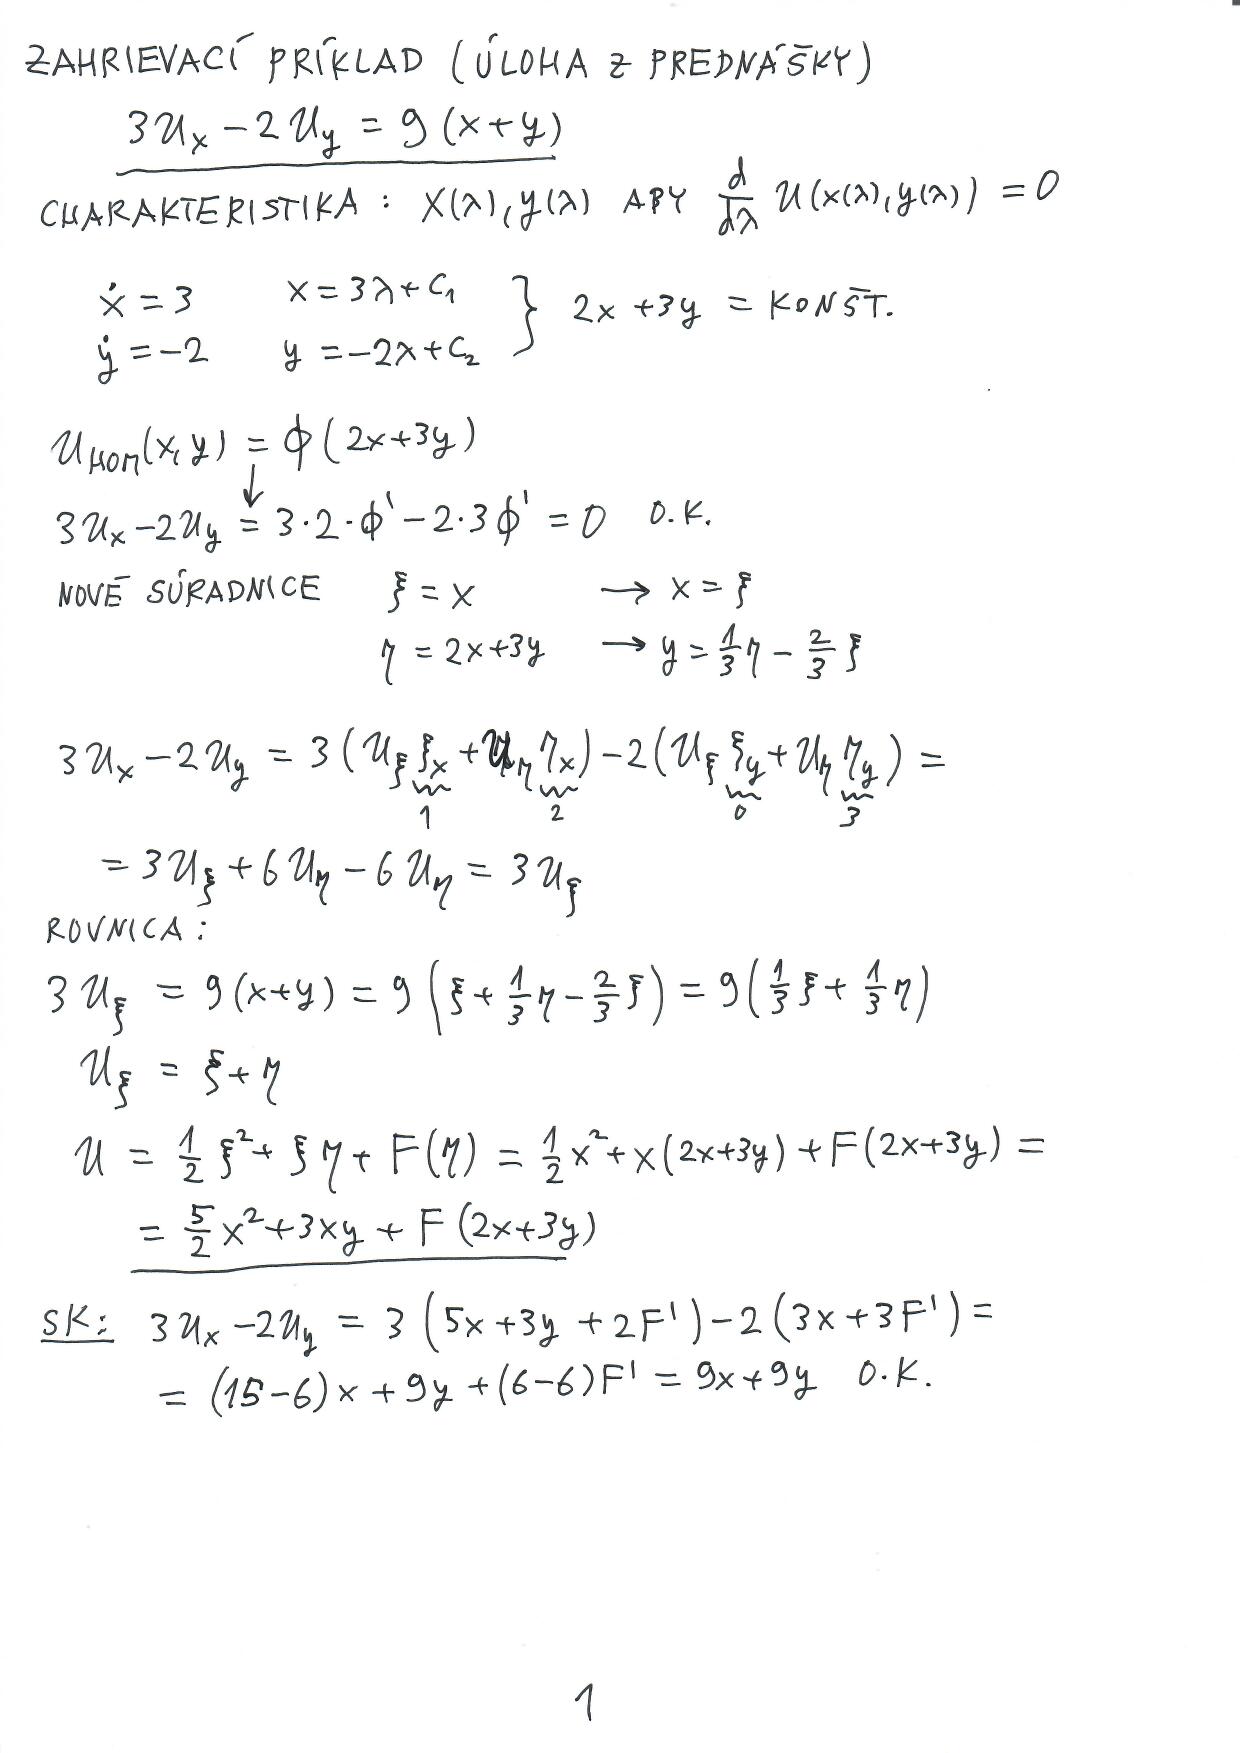 ZAHRIEVACÍ PRÍKLAD (ÚLOHA Z PREDNÁŠKY)
3u_x − 2u_y = 9(x+y)
CHARAKTERISTIKA : x(λ), y(λ) ABY d/dλ u(x(λ), y(λ)) = 0
ẋ = 3    x = 3λ + c₁
ẏ = −2    y = −2λ + c₂    } 2x + 3y = KONŠT.
u_HOM(x, y) = ϕ(2x+3y)
↓
3u_x − 2u_y = 3·2·ϕ' − 2·3ϕ' = 0    O.K.
NOVÉ SÚRADNICE    ξ = x    → x = ξ
η = 2x+3y    → y = 1/3 η − 2/3 ξ
3u_x − 2u_y = 3(u_ξ ξ_x + u_η η_x) − 2(u_ξ ξ_y + u_η η_y) =
1    2    0    3
= 3u_ξ + 6u_η − 6u_η = 3u_ξ
ROVNICA :
3u_ξ = 9(x+y) = 9(ξ + 1/3 η − 2/3 ξ) = 9(1/3 ξ + 1/3 η)
u_ξ = ξ + η
u = 1/2 ξ² + ξη + F(η) = 1/2 x² + x(2x+3y) + F(2x+3y) =
= 5/2 x² + 3xy + F(2x+3y)
SK: 3u_x − 2u_y = 3(5x + 3y + 2F') − 2(3x + 3F') =
= (15−6)x + 9y + (6−6)F' = 9x + 9y    O.K.
1